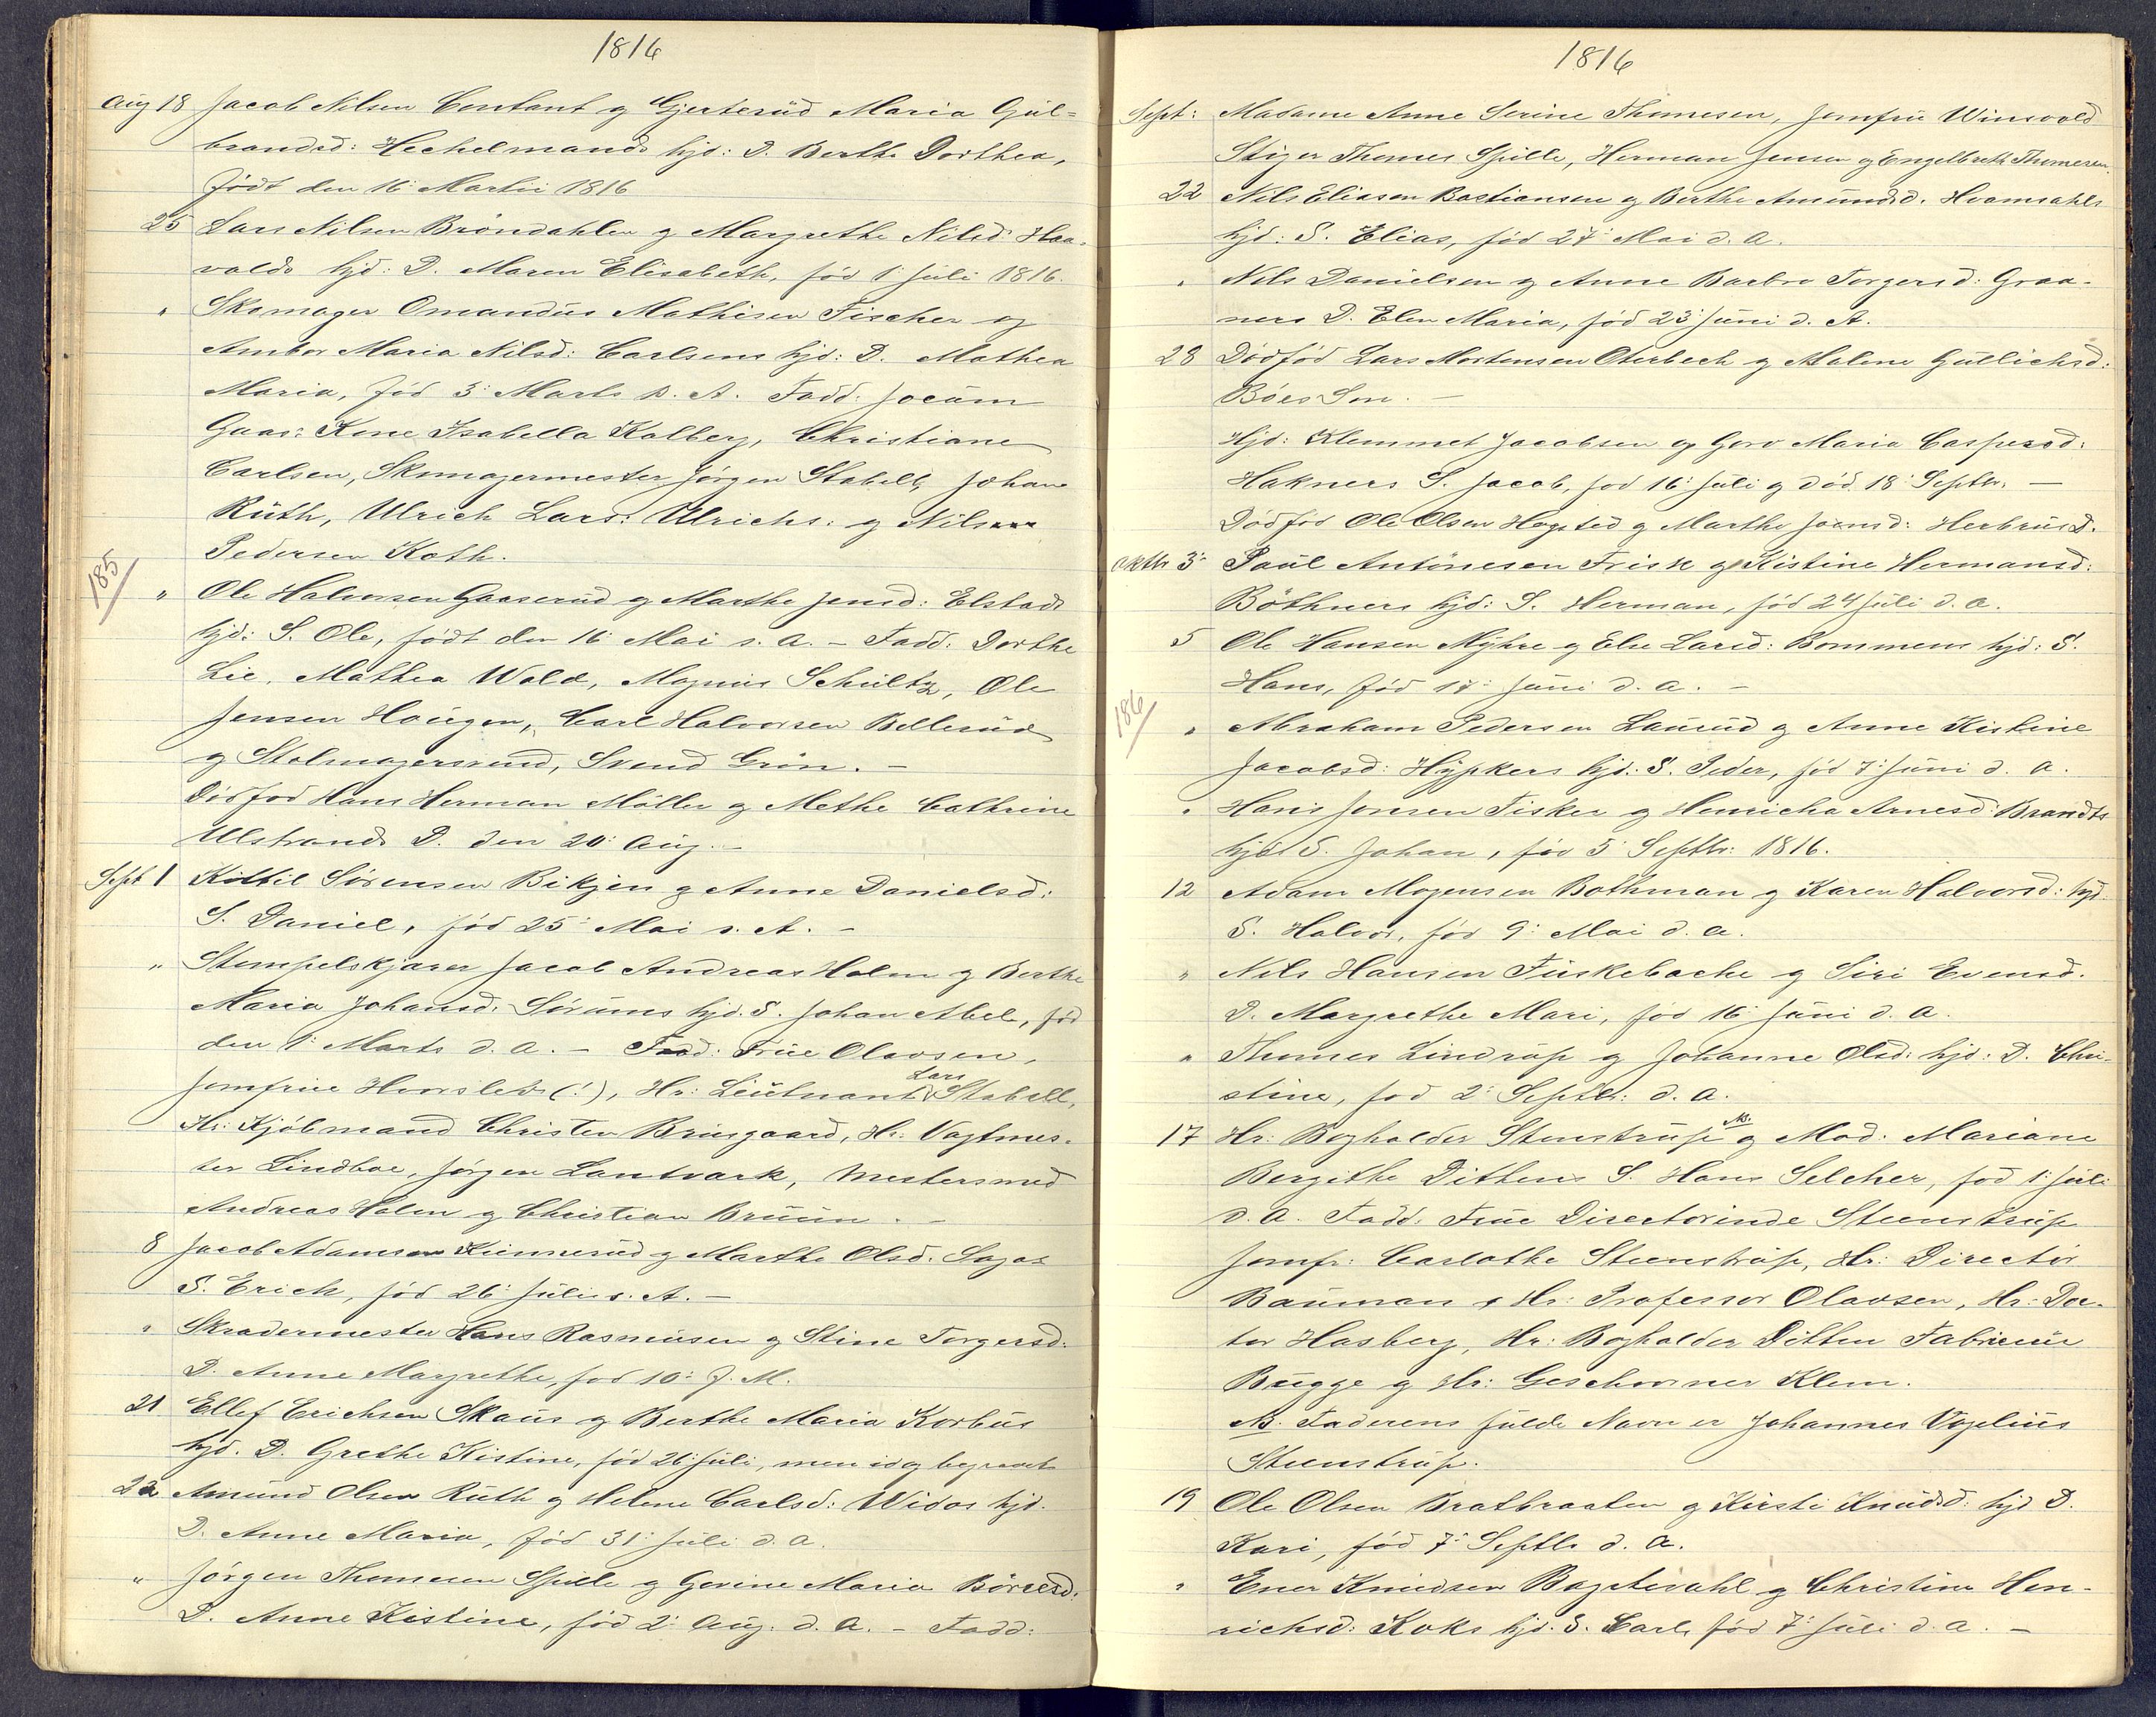 1816
Aug 18 Jacob Nilsen Contant og Gjerterud Maria Gul-
brandsd: Hechelmands hjd: D. Berthe Dorthea,
födt den 16: Martii 1816
25 Lars Nilsen Bröndahlen og Margrethe Nilsd: Haa-
valds hjd: D. Maren Elisabeth, föd 1: Juli 1816.
" Skomager Omandus Mathisen Fischer og
Ambor Maria Nilsd: Carlsens hjd: D. Mathea
Maria, föd 3: Marts s. A. Fadd: Jocum
Gaas: Kone Isabella Kalberg, Christiane
Carlsen, Skomagermester Jörgen Stabell, Johan
Ruth, Ulrich Lars: Ulrichs: og Nils
Pedersen Koth.
185
" Ole Halvorsen Gaaserud og Marthe Jensd: Elstads
hjd: S. Ole, födt den 16: Mai s. a. - Fadd: Dorthe
Lie, Mathea Wold, Magnus Schultz, Ole
Jensen Haugen, Carl Halvorsen Bellerud
og Stolmagersvend, Svend Grön. -
Dödfød Hans Herman Möller og Methe Cathrine
Ulstrands D. den 20: Aug. -
Sept 1 Kittil Sörensen Bikjen og Anne Danielsd:
S. Daniel, föd 25: Mai s. A. -
" Stempelskjærer Jacob Andreas Holm og Berthe
Maria Johansd: Sörums hjd. S. Johan Abel, föd
den 1: Marts d. a. - Fadd: Frue Olavsen,
Jomfrue Horslets (!), Hr: Lieutnant Lars Stabell,
Hr: Kjöbmand Christen Bruusgaard, Hr: Vagtmes-
ter Lindboe, Jörgen Lantvark, Mestersmed
Andreas Holm og Christian Bruun. -
8 Jacob Adamsen Kunnerud og Marthe Olsd. Sagas
S. Erich, föd 26: Juli s. A. -
" Skradermester Hans Rasmusen og Stine Torgersd:
D. Anne Margrethe, föd 10: J. M.
21 Ellef Erichsen Skaus og Berthe Maria Korbus
hjd. D. Grethe Kistine, föd 26: Juli, men idag begravet
22 Amund Olsen Ruth og Helene Carlsd: Widos hjd.
D. Anne Maria, föd 31: Juli d. a.
" Jörgen Thomesen Spille og Gorine Maria Börresd:
D. Anne Kistine, föd 2: Aug. d. a. - Fadd:
1816
Sept: Madame Anne Serine Thomesen, Jomfru Winsvold
Stiger Thomes Spille, Herman Jensen og Engelbreth Thomesen.
22 Nils Eliasen Bastiansen og Berthe Amundsd. Hvamsahls
hjd: S. Elias, föd 27: Mai d. A.
" Nils Danielsen og Anne Barbro Torgersd: Graa-
ners D. Elen Maria, föd 23: Juni d. A.
28 Dödföd Lars Mortensen Oterbech og Malene Gullichsd:
Böes Sön. -
Hjd: Klemmet Jacobsen og Goro Maria Caspersd:
Hakners S. Jacob, föd 16: Juli og död 18: Septbr. -
Dödföd Ole Olsen Hagsted og Marthe Joensd: Herbrus D.
Oktbr 3: Paul Antönesen Frisk og Kistine Hermansd:
Böthners hjd: S. Herman, föd 24 Juli d. a.
5 Ole Hansen Myhre og Else Larsd: Bommens hjd: S.
Hans, föd 17: Juni d. a. -
186
" Abraham Pedersen Laurud og Anne Kistine
Jacobsd: Hypkers hjd: S. Peder, föd 7: Juni d. a.
" Hans Jonsen Fisker og Henricha Arnesd: Brandts
hjd S. Johan, föd 5: Septbr: 1816.
12 Adam Mogensen Bothman og Karen Halvorsd: hjd:
S. Halvor, föd 9: Mai d. a.
" Nils Hansen Fuskebache og Siri Evensd.
D. Margrethe Mari, föd 16: Juni d. a.
" Thomes Lindrup og Johanne Olsd: hjd: D. Chri-
stine, föd 2: Septbr: d. a.
17 Hr: Bogholder Stenstrup NB. og Mad: Mariane
Bergithe Dittens S. Hans Selcher, föd 1: Juli
d. a. Fadd: Frue Directorinde Steenstrup
Jomfr: Carlothe Steenstrup, Hr: Director
Bauman, Hr: Professor Olavsen, Hr: Doc-
tor Hasberg, Hr: Bogholder Ditten Fabrieue
Bugge og Hr: Geschworner Klem.
NB. Faderens fulde Navn er Johannes Vogelius
Steenstrup.
19 Ole Olsen Bratbraaten og Kirsti Knudsd: hjd D.
Kari, föd 7: Septbr d. a.
" Ener Knudsen Bagstevahl og Christine Hen-
richsd: Koks hjd: S. Carl, föd 7: Juli d. a. -